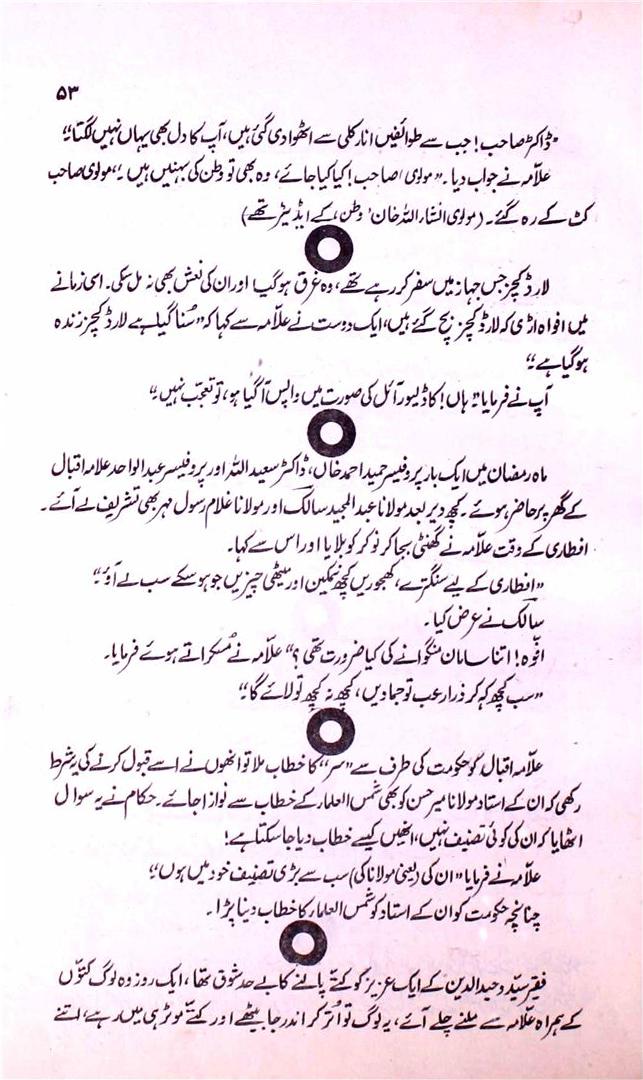 ۵۳
"ڈاکٹر صاحب! جب سے طوائفیں انارکلی سے اٹھوا دی گئی ہیں، آپ کا دل بھی یہاں نہیں لگتا"
علاّمہ نے جواب دیا۔ "مولوی صاحب! کیا کیا جائے، وہ بھی تو وطن کی بہنیں ہیں۔" مولوی صاحب
کٹ کے رہ گئے۔ (مولوی انشاء اللہ خان 'وطن' کے ایڈیٹر تھے)
لارڈ کچز جس جہاز میں سفر کر رہے تھے، وہ غرق ہو گیا اور ان کی نعش بھی نہ مل سکی۔ اسی زمانے
میں افواہ اڑی کہ لارڈ کچز بچ گئے ہیں، ایک دوست نے علاّمہ سے کہا کہ "سُنا گیا ہے لارڈ کچز زندہ
ہو گیا ہے"
آپ نے فرمایا "ہاں! کاڈلیور آئل کی صورت میں واپس آ گیا ہو، تو تعجب نہیں"
ماہ رمضان میں ایک بار پروفیسر حمید احمد خاں، ڈاکٹر سعید اللہ اور پروفیسر عبدالواحد علامہ اقبال
کے گھر پر حاضر ہوئے۔ کچھ دیر بعد مولانا عبدالمجید سالک اور مولانا غلام رسول مہر بھی تشریف لے آئے۔
افطاری کے وقت علاّمہ نے گھنٹی بجا کر نوکر کو بلایا اور اس سے کہا۔
"افطاری کے لیے سنگترے، کھجوریں کچھ نمکین اور میٹھی چیزیں جو ہو سکے سب لے آؤ"
سالک نے عرض کیا۔
افّوہ! اتنا سامان منگوانے کی کیا ضرورت تھی؟" علاّمہ نے مُسکراتے ہوئے فرمایا۔
"سب کچھ کہہ کر ذرا رعب تو جما دیں، کچھ نہ کچھ تو لائے گا"
علاّمہ اقبال کو حکومت کی طرف سے "سر" کا خطاب ملا تو انھوں نے اسے قبول کرنے کی یہ شرط
رکھی کہ ان کے استاد مولانا میر حسن کو بھی شمس العلماء کے خطاب سے نوازا جائے۔ حکام نے یہ سوال
اٹھایا کہ ان کی کوئی تصنیف نہیں، انھیں کیسے خطاب دیا جا سکتا ہے!
علاّمہ نے فرمایا "ان کی (یعنی مولانا کی) سب سے بڑی تصنیف خود میں ہوں"
چنانچہ حکومت کو ان کے استاد کو شمس العلماء کا خطاب دینا پڑا۔
فقیر سیّد وحید الدین کے ایک عزیز کو کتّے پالنے کا بے حد شوق تھا، ایک روز وہ لوگ کتّوں
کے ہمراہ علاّمہ سے ملنے چلے آئے، یہ لوگ تو اُتر کر اندر جا بیٹھے اور کتّے موٹر ہی میں رہے، اتنے